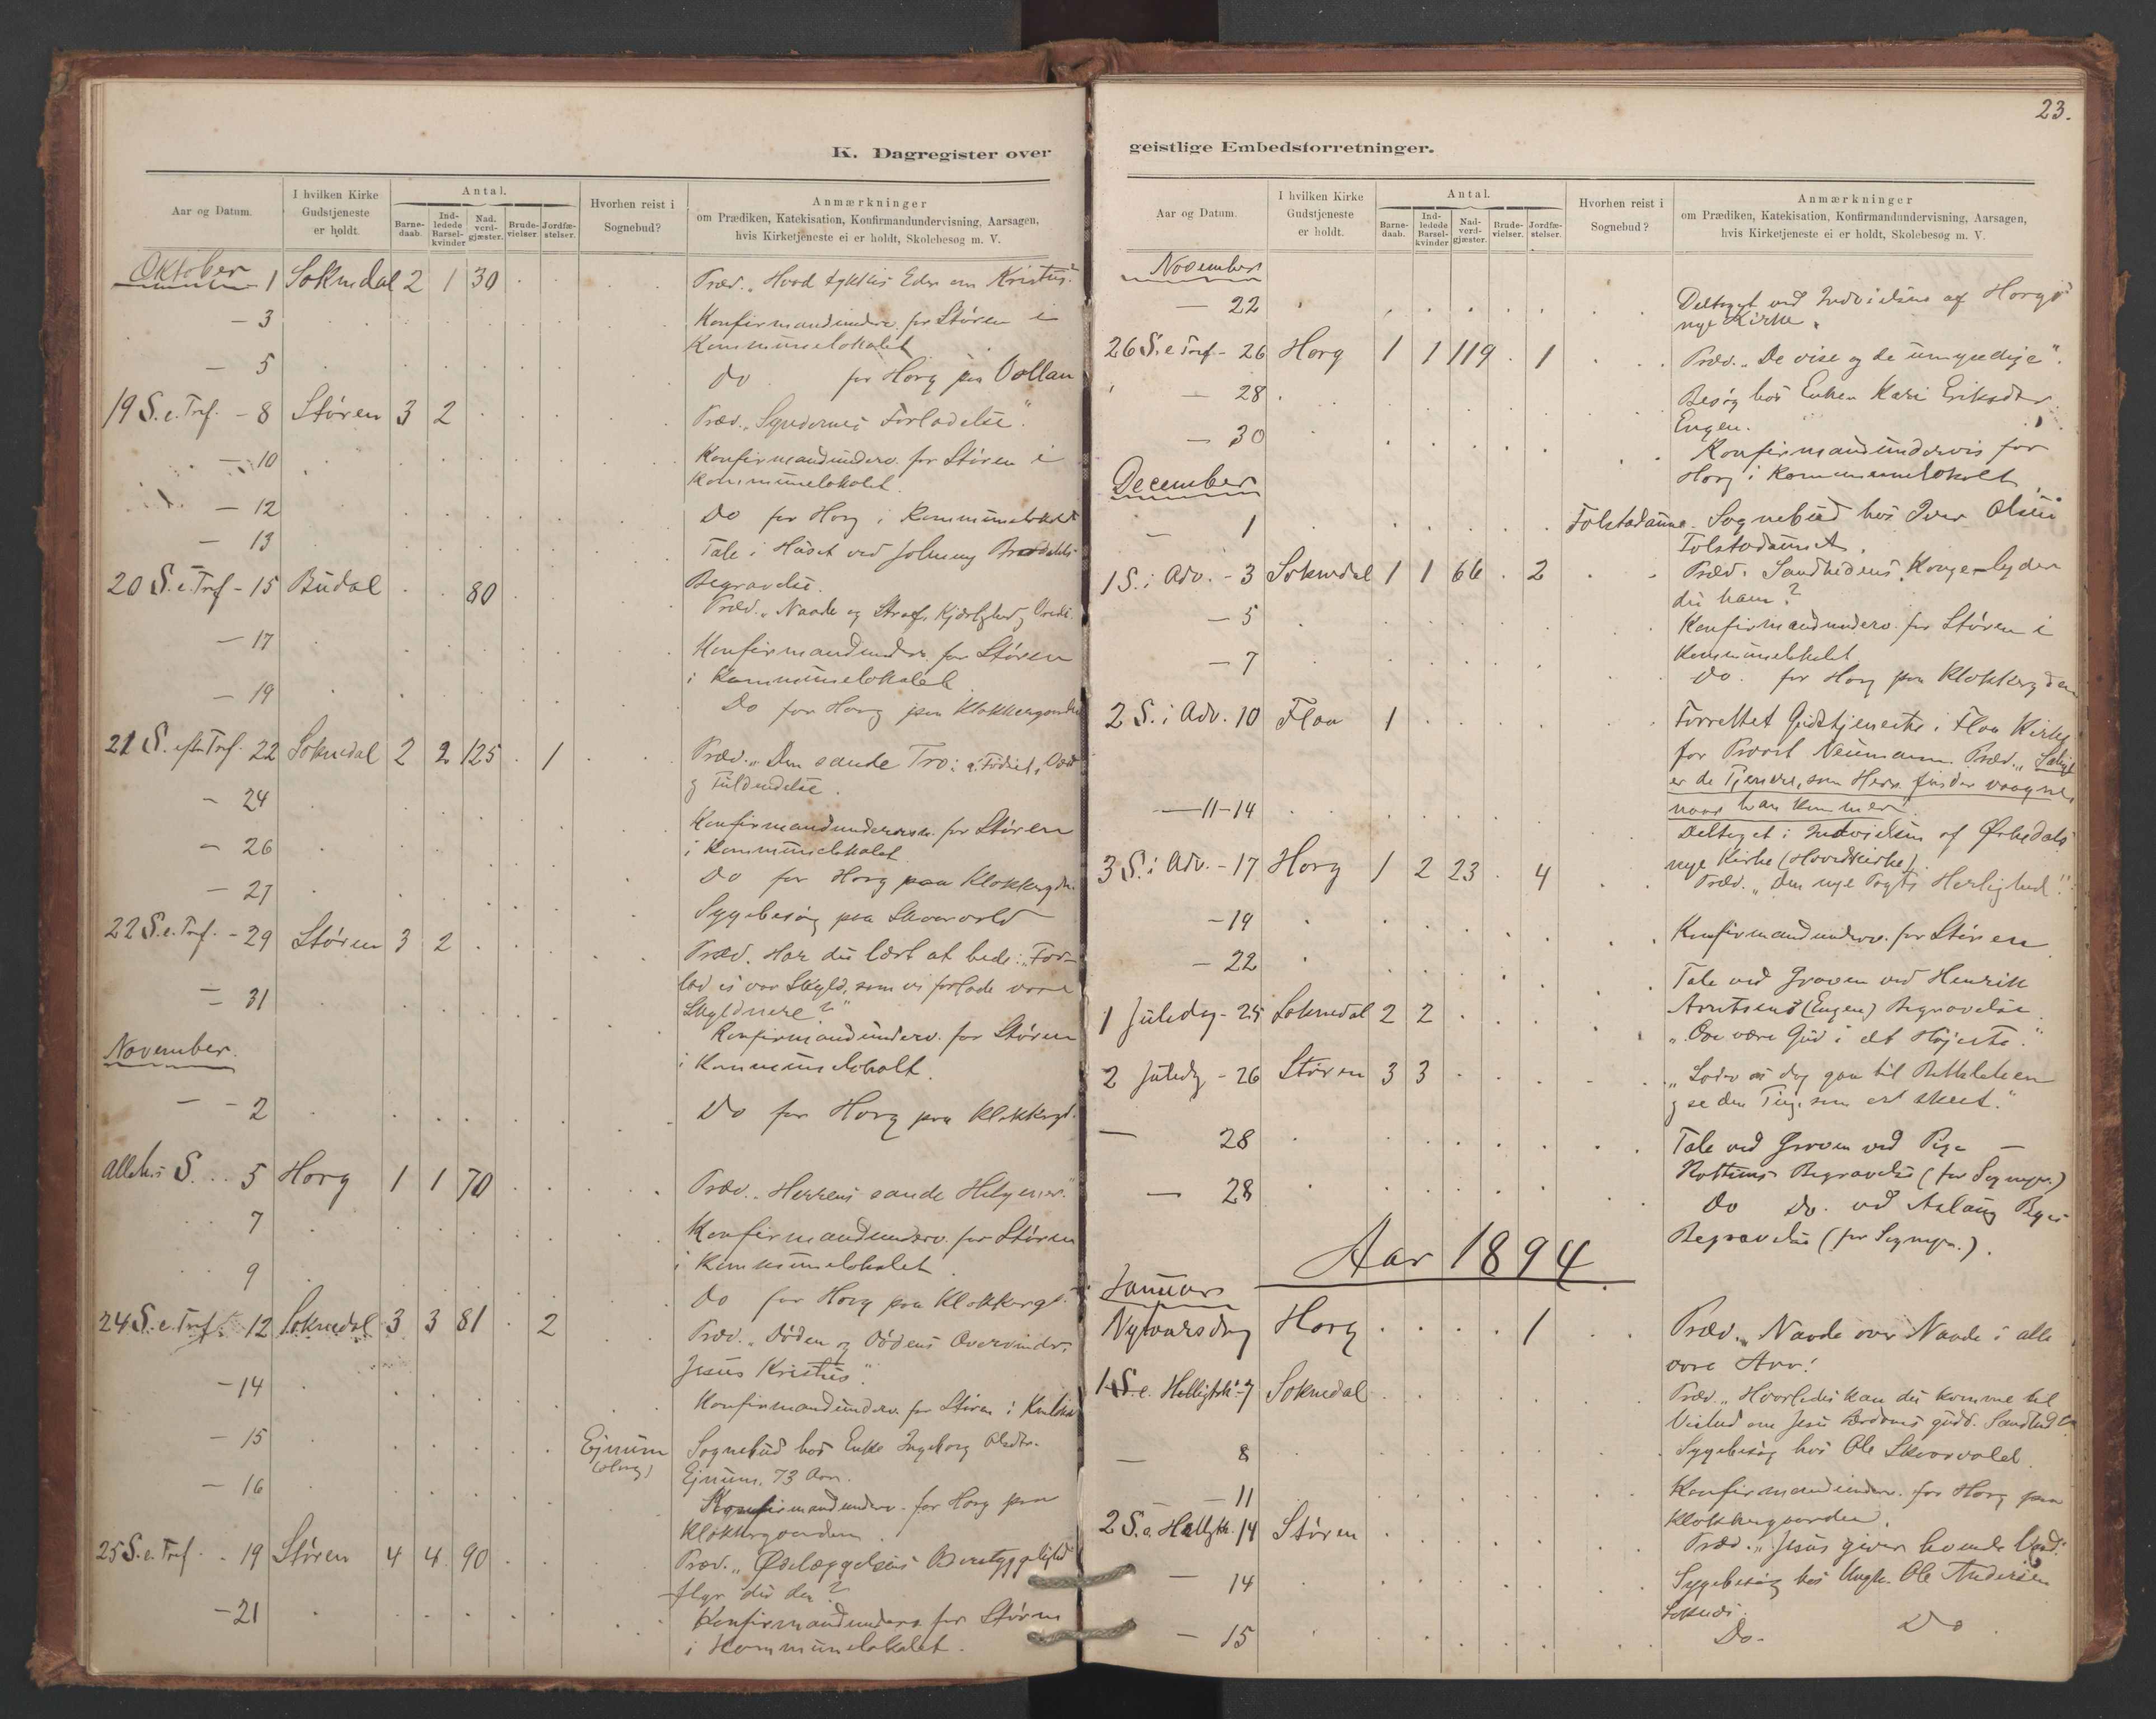 K. Dagregister over
Aar og Datum.
I hvilken Kirke Gudstjeneste er holdt.
Antal.
Barne-daab.
Ind-ledede Barsel-kvinder
Nad.verd-gjæster.
Brude-vielser.
Jordfæ-stelser.
Hvorhen reist i Sognebud?
Anmærkninger
om Prædiken, Katekisation, Konfirmandundervisning, Aarsagen,
hvis Kirketjeneste ei er holdt, Skolebesøg m. V.
Oktober 1 Soknedal 2 1 30 Præd. "Hvad tykkis Eder om Kristus?"
- 3 Konfirmandunderv. for Støren i
Kommunelokalet
- 5 Do for Horg paa Vollan
19 S. e. Tref. - 8 Støren 3 2 Præd. "Syndernes Forladelse".
- 10 Konfirmandunderv. for Støren i
Kommunelokalet.
- 12 Do for Horg i Kommunelokalet
- 13 Tale i Huset ved
Begravelse.
20 S. e. Tref - 15 Budal 80 Præd. "Naade og Straf, Kjærlighed og Vrede.
- 17 Konfirmandunderv. for Støren
i Kommunelokalet
- 19 Do for Horg paa Klokkergaarden
21 S. efter Tref. 22 Soknedal 2 2 125 1 Præd. "Den sande Tro:
og Fuldendelse.
- 24 Konfirmandunderv. for Støren
i Kommunelokalet
- 26 Do for Horg paa Klokkergdn.
- 27 Sygebesøg paa Skaarvold
22 S. e. Tref. - 29 Støren 3 2 Præd. Har du lært at bede: "For-
lad os vor Skyld, som vi forlade vore
Skyldnere?"
- 31 Konfirmandunderv. for Støren
i Kommunelokalt.
November.
- - 2 Do for Horg paa Klokkergd.
Alleh. S. .. 5 Horg 1 1 70 Præd. "Herrens sande Helgener."
7 Konfirmandunderv. for Støren
i Kommunelokalet.
9 Do for Horg paa Klokkergd.
24 S. e. Tref. 12 Soknedal 3 3 81 2 Præd. "Døden og Dødens Overvinder,
Jesus Kristus".
- 14 Konfirmandunderv. for Støren i
- 15 Ejnum Sognebud hos Enke Ingeborg Olsdtr.
(Horg) Ejnum, 73 Aar.
- 16 Konfirmandunderv. for Horg paa
Klokkergaarden.
25 S. e. Tref. - 19 Støren 4 4 90 Præd. "Ødelæggelsens Vederstyggelighed
flyr du den?
- 21 Konfirmandunderv. for Støren
i Kommunelokalet.
23.
geistlige Embedsforretninger.
Aar og Datum.
I hvilken Kirke Gudstjeneste er holdt.
Antal.
Barne-daab.
Ind-ledede Barsel-kvinder
Nad-verd-gjæster.
Brude-vielser.
Jordfæ-stelser.
Hvorhen reist i Sognebud?
Anmærkninger
om Prædiken, Katekisation, Konfirmandundervisning, Aarsagen,
hvis Kirketjeneste ei er holdt, Skolebesøg m. V.
November
- 22 Deltaget ved Indvielsen af Horgs
nye Kirke.
26 S. e Tref - 26 Horg 1 1 119 1 Præd. "De vise og de umyndige".
- 28 Besøg hos Enken Kari Eriksdtr
Engen.
- 30 Konfirmandundervis for
Horg i Kommunelokalet
December
- 1 Folstadaune. Sognebud hos Iver Olsen
Folstadaunet.
1 S. i Adv. - 3 Soknedal 1 1 66 2 Præd. Sandhedens Konge - lyder
du ham?
- 5 Konfirmandunderv. for Støren i
Kommunelokalet
- 7 Do. for Horg paa Klokkergden
2 S. i Adv. 10 Flaa 1 Forrettet Gudstjeneste i Flaa Kirke
for Provst Neumann. Præd. "Salige
er de Tjenere, som Herr. finder vaagne,
naar han kommer"
- 11-14 Deltaget i Indvielsen af Ørkedals
nye Kirke (Hovedkirke).
3 S. i Adv. - 17 Horg 1 2 23 4 Præd. "Den nye Pagts Herlighed".
- 19 Konfirmandunderv. for Støren
- 22 Tale ved Graven ved Henrik
Arntsens (Engen) Begravelse.
1 Juledag - 25 Soknedal 2 2 "Ære være Gud i det Højeste."
2 Juledg - 26 Støren 3 3 "Lader os dog gaa til Bethlehem
og se den Ting, som er skeet."
- 28 Tale ved Graven ved Pige -
Begravelse (for Sognepr.)
- 28 Do Do. ved Aslaug
Begravelse (for Sognepr.).
Aar 1894.
Januar
Nytaarsdag Horg 1 Præd. "Naade over Naade i alle
vore Aar!
1 S. e. Helligtrk. - 7 Soknedal Præd. "Hvorledes kan du komme til
Vished om Jesu Lærdoms gudd. Sandhed?
- 8 Sygebesøg hos Ole Skaarvold.
- 11 Konfirmandunderv. for Horg paa
Klokkergaarden.
2 S. e. Helligtk. 14 Støren Præd. "Jesus giver levende Vand."
- 14 Sygebesøg hos Ungk. Ole Andersen
- 15 Do. Do